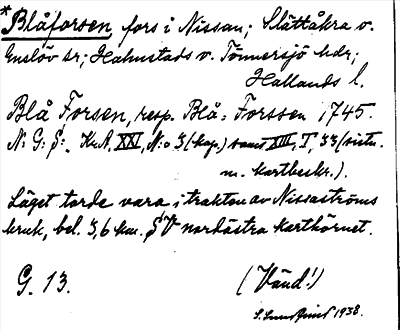 *Blåforsen fors i Nissan; Slättåkra o.
Enslöv sr; Halmstads o. Tönnersjö hdr;
Hallands l.
Blå Forsen, resp. Blå-Forssen 1745.
N: G: S:. Kr.A. XXI, N:o 3 (kop.) samt XIII, I, 33 (sistn.
m. kartbeskr.).
Läget torde vara i trakten av Nissaströms
bruk, bel. 3,6 km. SV nordöstra karthörnet.
G. 13.
(Vänd!)
1938.